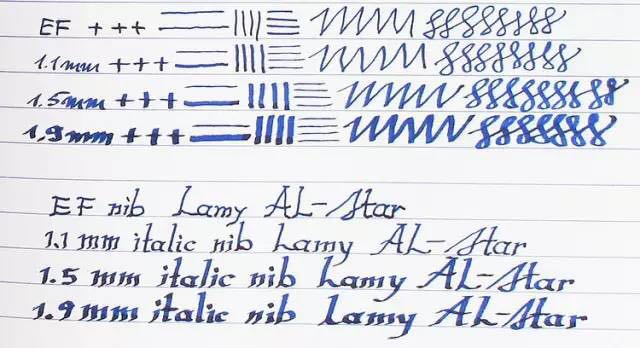 EF + + +
1.1mm + + +
1.5mm + + +
1.9mm + + +
EF nib Lamy AL-Star
1.1 mm italic nib Lamy AL-Star
1.5 mm italic nib Lamy AL-Star
1.9 mm italic nib Lamy AL-Star